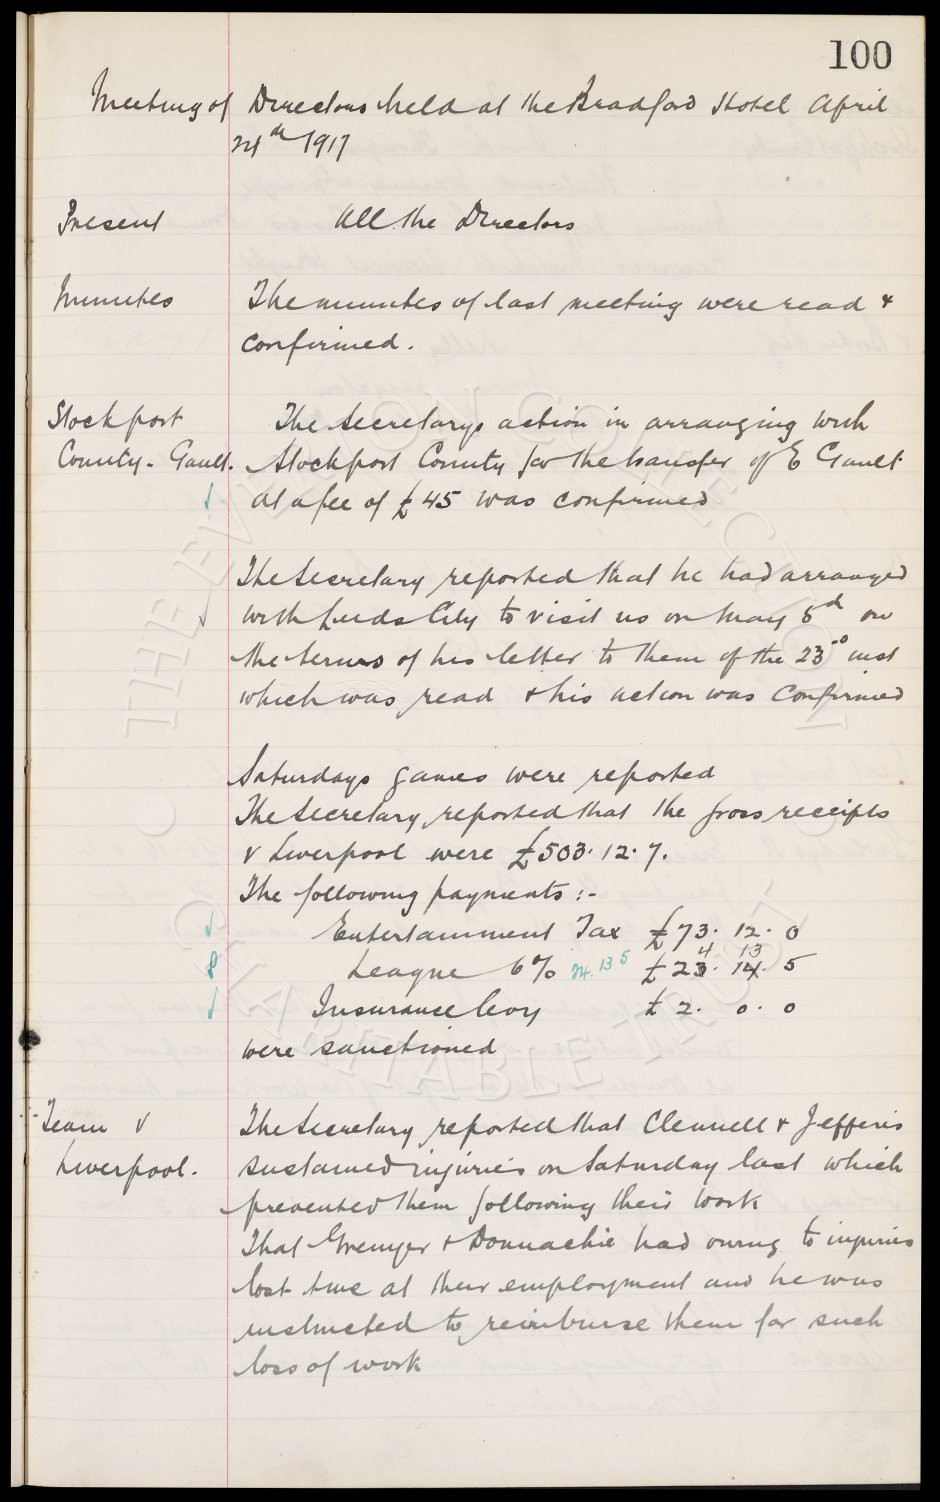 100
Meeting of Directors held at the Bradford Hotel April
24th 1917
Present All the Directors
Minutes The minutes of last meeting were read &
confirmed.
Stockport The Secretarys action in arranging with
County - Gault. Stockport County for the transfer of E Gault
at a fee of £45 was confirmed
The Secretary reported that he had arranged
with Leeds City to visit us on May 5th on
the terms of his letter to them of the 23rd inst
which was read & his action was confirmed
Saturdays games were reported
The Secretary reported that the gross receipts
v Liverpool were £503. 12. 7.
The following payments :-
Entertainment Tax £73. 12. 0
4 13
League 5% 24. 13 5 £23. 14. 5
Insurance levy £2. 0. 0
were sanctioned
Team v The Secretary reported that Clennell & Jefferis
Liverpool. sustained injuries on Saturday last which
prevented them following their work
That Grenyer & Donnachie had owing to injuries
lost time at their employment and he was
instructed to reimburse them for such
loss of work
THE EVERTON COLLECTION
CHARITABLE TRUST